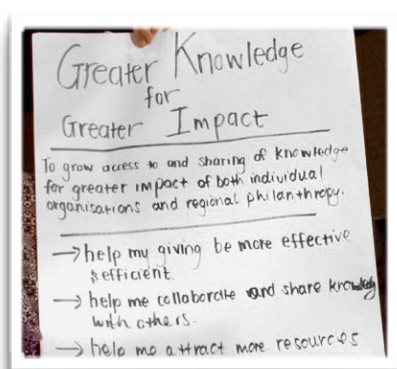 Greater Knowledge
for
Greater Impact
To grow access to and sharing of knowledge
for greater impact of both individual
organisations and regional philanthropy.
→ help my giving be more effective
& efficient.
→ help me collaborate and share knowledge
with others.
→ help me attract more resources